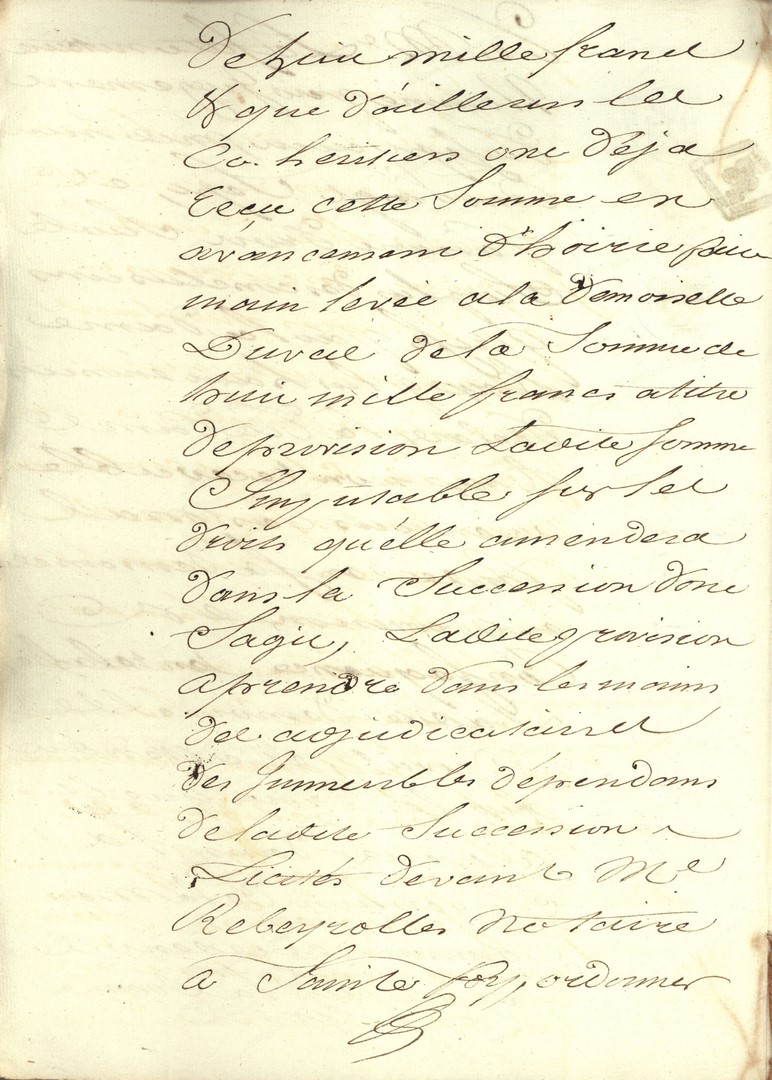 de huit mille francs
& que d'ailleurs les
Co. heritiers ont déja
Recu cette Somme en
avancement d'hoirie faire
main levée a la Demoiselle
Duval de la Somme de
huit mille francs a titre
de provision Ladite Somme
Imputable sur les
droits qu'elle amendera
dans la Succession dont
S'agit, Ladite provision
a prendre dans les mains
des adjudicataires
des Immeubles dépendans
de ladite Succession
Licités devant Me
Rebeyrolles Notaire
a Sainte foy, ordonner